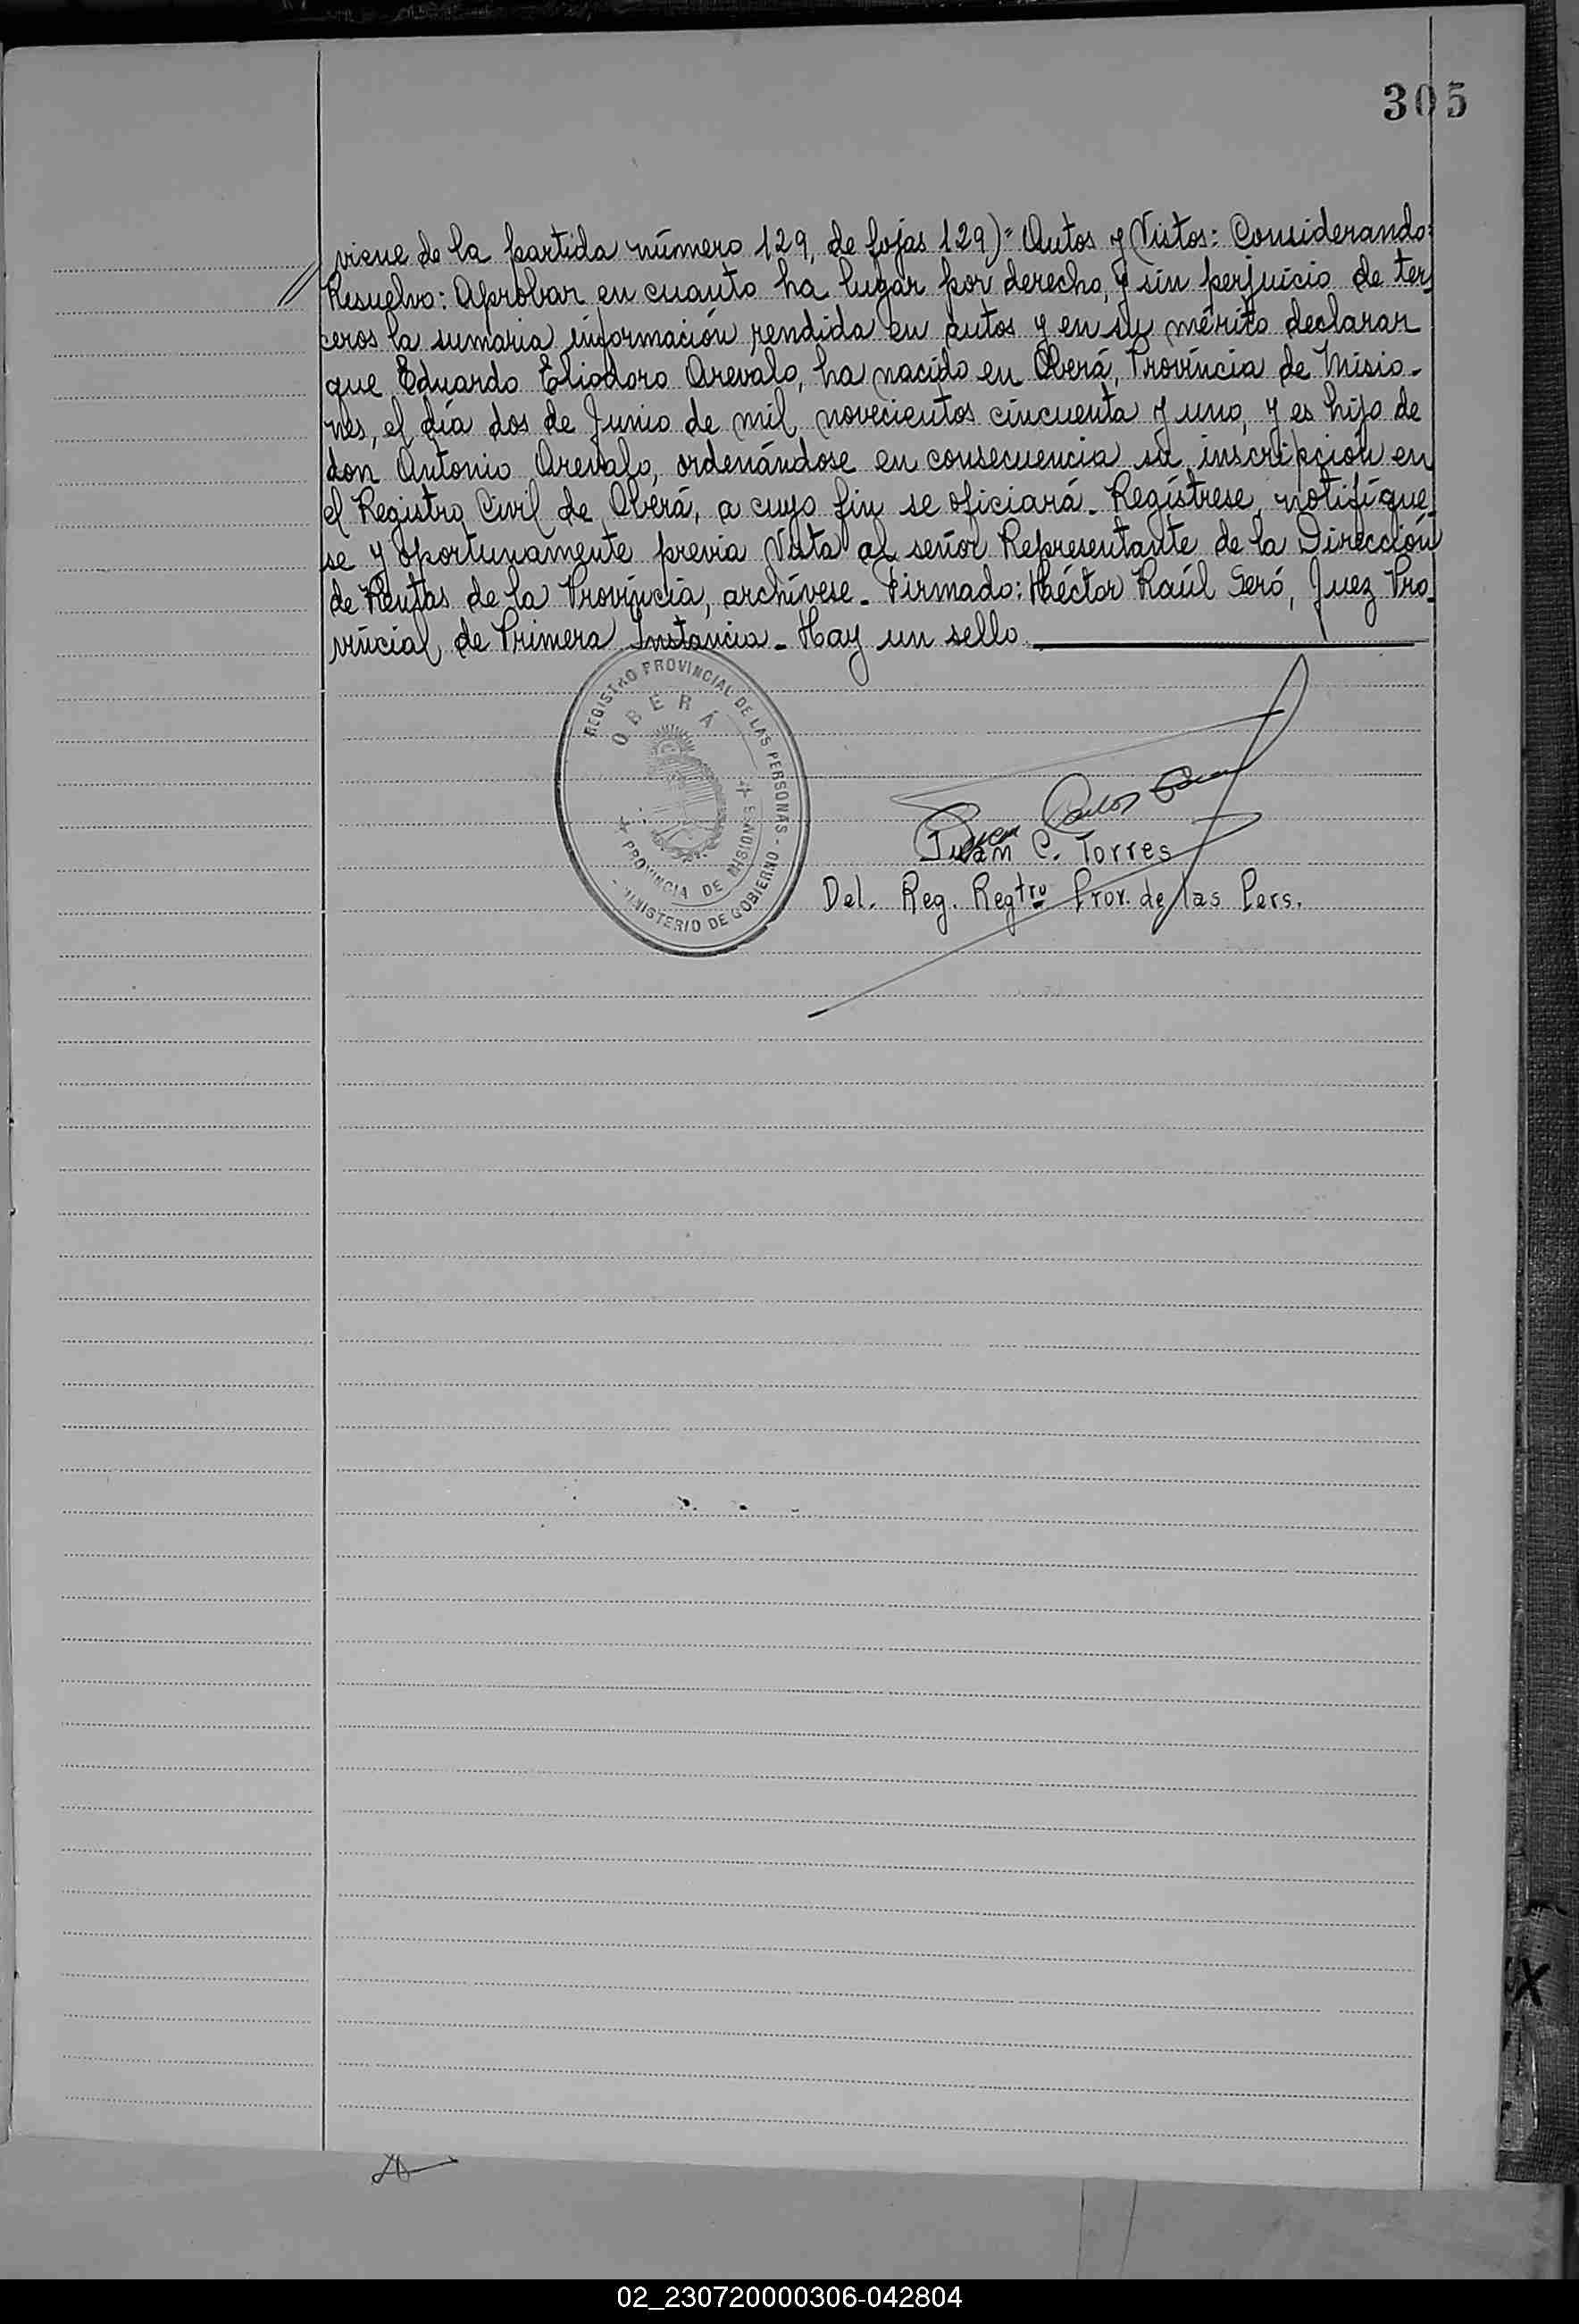 305
viene de la partida número 129, de fojas 129)= Autos y Vistos: Considerando:
Resuelvo: Aprobar en cuanto ha lugar por derecho, y sin perjuicio de ter-
ceros la sumaria información rendida en autos y en su mérito declarar
que Eduardo Eliodoro Arevalo, ha nacido en Oberá, Provincia de Misio-
nes, el día dos de Junio de mil novecientos cincuenta y uno, y es hijo de
don Antonio Arevalo, ordenándose en consecuencia su inscripción en
el Registro Civil de Oberá, a cuyo fin se oficiará. Regístrese, notifíque-
se y oportunamente previa Vista al señor Representante de la Dirección
de Rentas de la Provincia, archívese. Firmado: Héctor Raúl Seró, Juez Pro-
vincial de Primera Instancia. Hay un sello.
REGISTRO PROVINCIAL DE LAS PERSONAS - MINISTERIO DE GOBIERNO -
OBERÁ
PROVINCIA DE MISIONES
Juan Carlos
Juan C. Torres
Del. Reg. Regtro Prov. de las Pers.
02_230720000306-042804